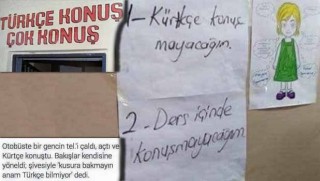 TÜRKÇE KONUŞ
ÇOK KONUŞ
1- Kürtkçe konuş
mayacağım.
2- Ders içinde
konuşmayacağım
Otobüste bir gencin tel.'i çaldı, açtı ve
Kürtçe konuştu. Bakışlar kendisine
yöneldi; şivesiyle 'kusura bakmayın
anam Türkçe bilmiyor' dedi.